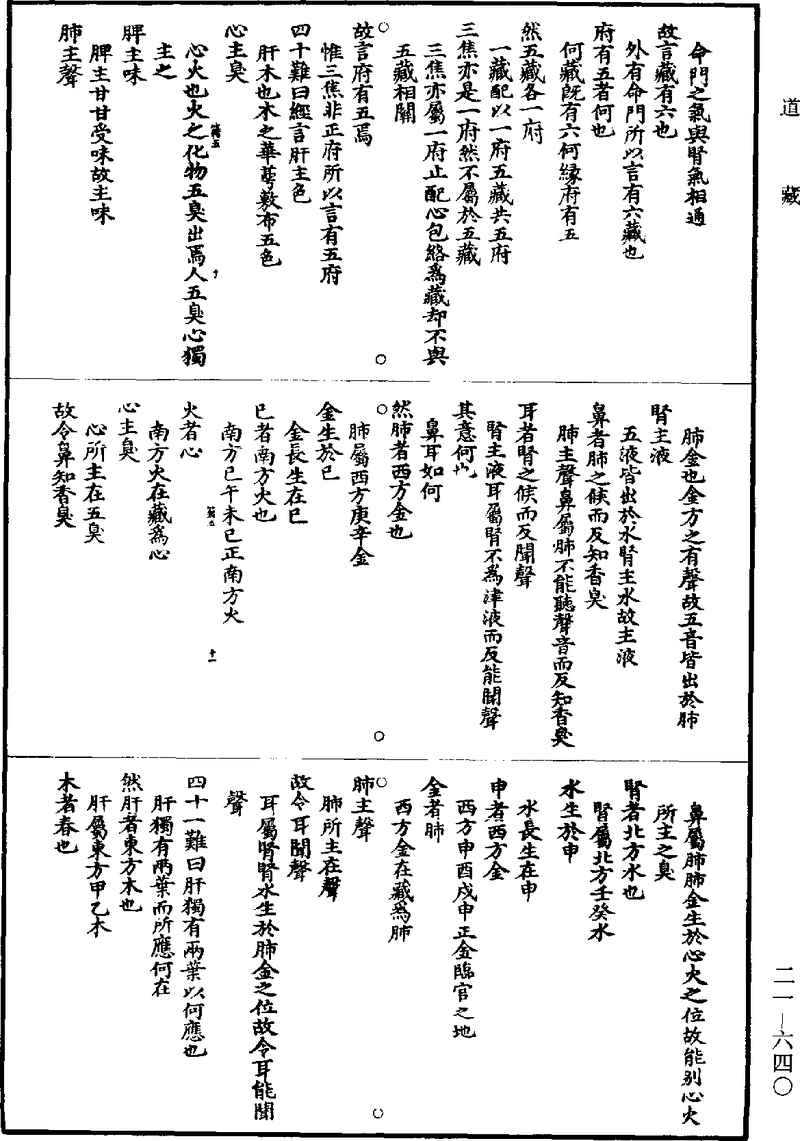 道藏
命門之氣與腎氣相通
故言藏有六也
外有命門所以言有六藏也
府有五者何也
何藏既有六何緣府有五
然五藏各一府
一藏配以一府五藏共五府
三焦亦是一府然不屬於五藏
三焦亦屬一府止配心包絡為藏却不與
五藏相關
故言府有五焉
惟三焦非正府所以言有五府
四十難曰經言肝主色
肝木也木之華萼敷布五色
心主臭
心火也火之化物五臭出焉人五臭心獨
主之
脾主味
脾主甘甘受味故主味
肺主聲
肺金也金方之有聲故五音皆出於肺
腎主液
五液皆出於水腎主水故主液
鼻者肺之候而反知香臭
肺主聲鼻屬肺不能聽聲音而反知香臭
耳者腎之候而反聞聲
腎主液耳屬腎不為津液而反能聞聲
其意何也
鼻耳如何
然肺者西方金也
肺屬西方庚辛金
金生於巳
金長生在巳
巳者南方火也
南方巳午未巳正南方火
火者心
南方火在藏為心
心主臭
心所主在五臭
故令鼻知香臭
十一
鼻屬肺肺金生於心火之位故能别心火
所主之臭
腎者北方水也
腎屬北方壬癸水
水生於申
水長生在申
申者西方金
西方申酉戌申正金臨官之地
金者肺
西方金在藏為肺
肺主聲
肺所主在聲
故令耳聞聲
耳屬腎腎水生於肺金之位故令耳能聞
聲
四十一難曰肝獨有兩葉以何應也
肝獨有兩葉而所應何在
然肝者東方木也
肝屬東方甲乙木
木者春也
二一—六四〇